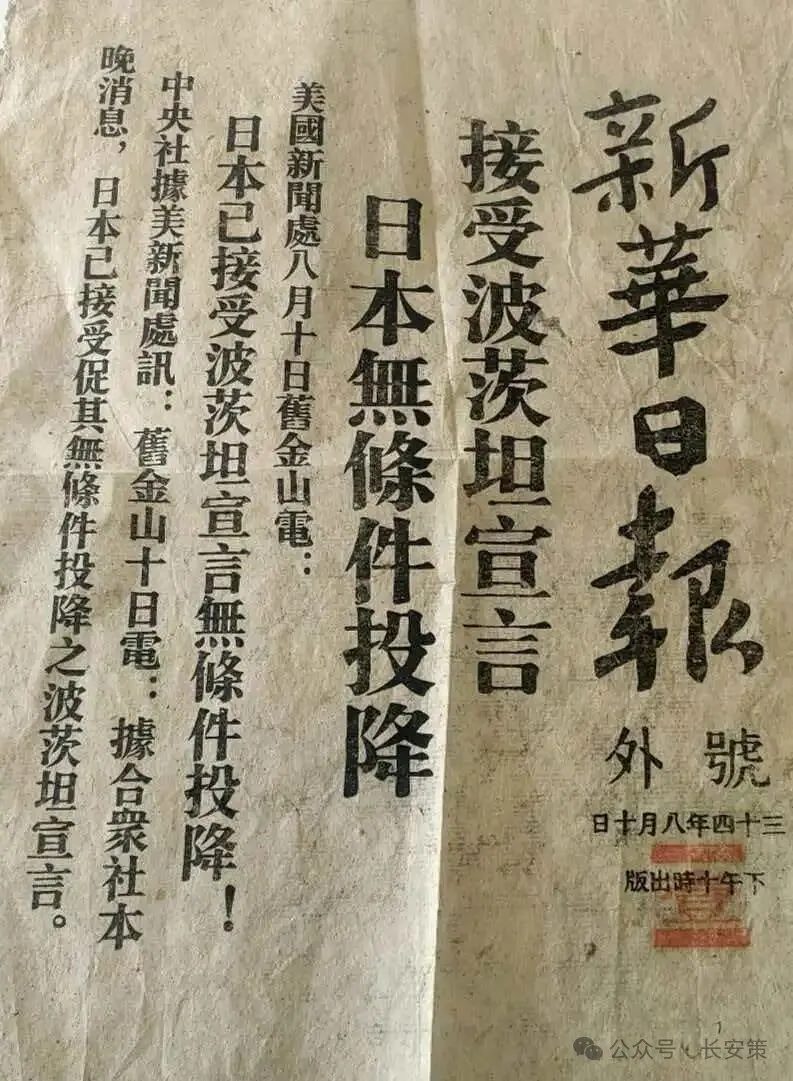 新華日報
號外
三十四年八月十日
下午十時出版
接受波茨坦宣言
日本無條件投降
美國新聞處八月十日舊金山電：
日本已接受波茨坦宣言無條件投降！
中央社據美新聞處訊：舊金山十日電：據合衆社本
晚消息，日本已接受促其無條件投降之波茨坦宣言。
公众号·长安策